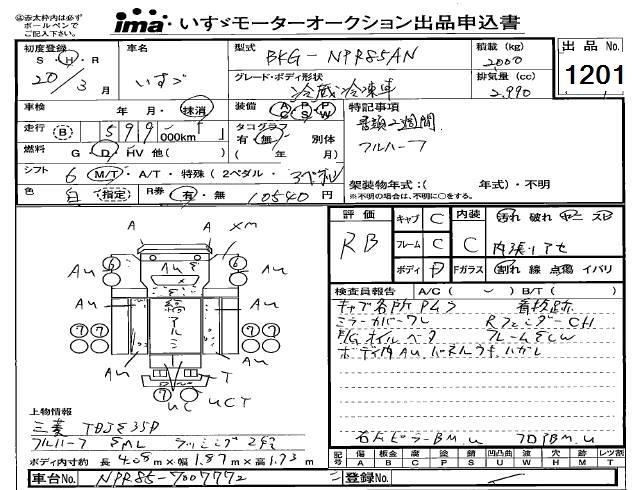 ①赤太枠内は必ず
ボールペンで
ご記入下さい。
ima いすゞモーターオークション出品申込書
初度登録 S・H・R 20/3月
車名 いすゞ
型式 BKG-NPR85AN
積載(kg) 2000
出品No. 1201
グレード・ボディ形状 冷蔵冷凍車
排気量(cc) 2,990
車検 年・月・抹消
装備 AC PS PW
特記事項
書類2週間
フルハーフ
走行 B 599 000km
タコグラフ 有・無 別体
( 年 月)
燃料 G・D・HV 他( )
シフト 6 M/T・A/T・特殊(2ペダル・3ペダル)
架装物年式:( 年式)・不明
※不明の場合は、不明に○をする。
色 白 (指定) R券 有・無 10540円
評価 RB
キャブ C 内装 C 汚れ 破れ
フレーム C 内張リアセ
ボディ D Fガラス 割れ 線 点傷 イバリ
検査員報告 A/C( ) B/T( )
キャブ各所PLS 看板跡
ミラーカバーワレ RフェンダーCH
E/Gオイルベタ フレームSCW
ボディ内AU.パネルウキ.ハガレ
右ドピラーBM.U フロアBM.U
A A XM
AU ⑥ AU ⑥ AU
縞アルミ
⑦⑦ ⑦⑦
AU AU
T
⑦ UC UCT
上物情報
三菱 TDJS35D
フルハーフ SML ラッシング2段
ボディ内寸約 長4.08m×幅1.87m×高1.93m
記号 傷A 板金B 腐C 塗P 歪D 錆S 凹凸曲U 波W 穴H 跡M レツ割T
車台No. NPR85-7007772
登録No.